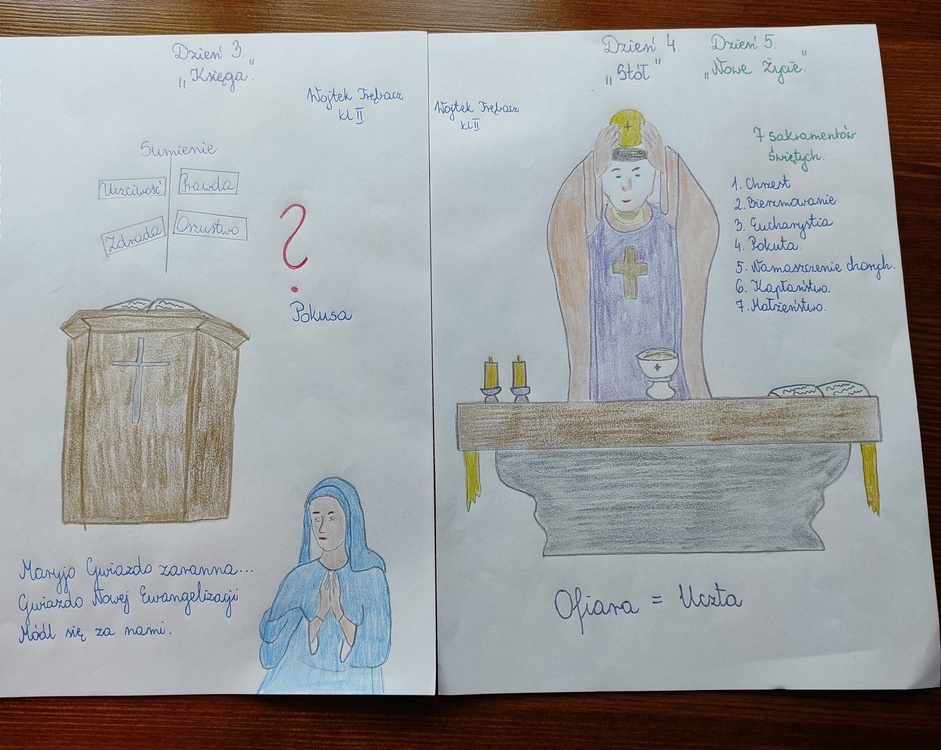 Dzień 3.
"Księga."
Wojtek Trębacz
kl II
Sumienie
Uczciwość
Prawda
Zdrada
Oszustwo
?
Pokusa
Maryjo Gwiazdo zaranna...
Gwiazdo Nowej Ewangelizacji
Módl się za nami.
Dzień 4.
"Stół"
Dzień 5.
"Nowe Życie."
Wojtek Trębacz
kl II
7 Sakramentów
Świętych.
1. Chrzest
2. Bierzmowanie
3. Eucharystia
4. Pokuta.
5. Namaszczenie chorych.
6. Kapłaństwo.
7. Małżeństwo.
Ofiara = Uczta